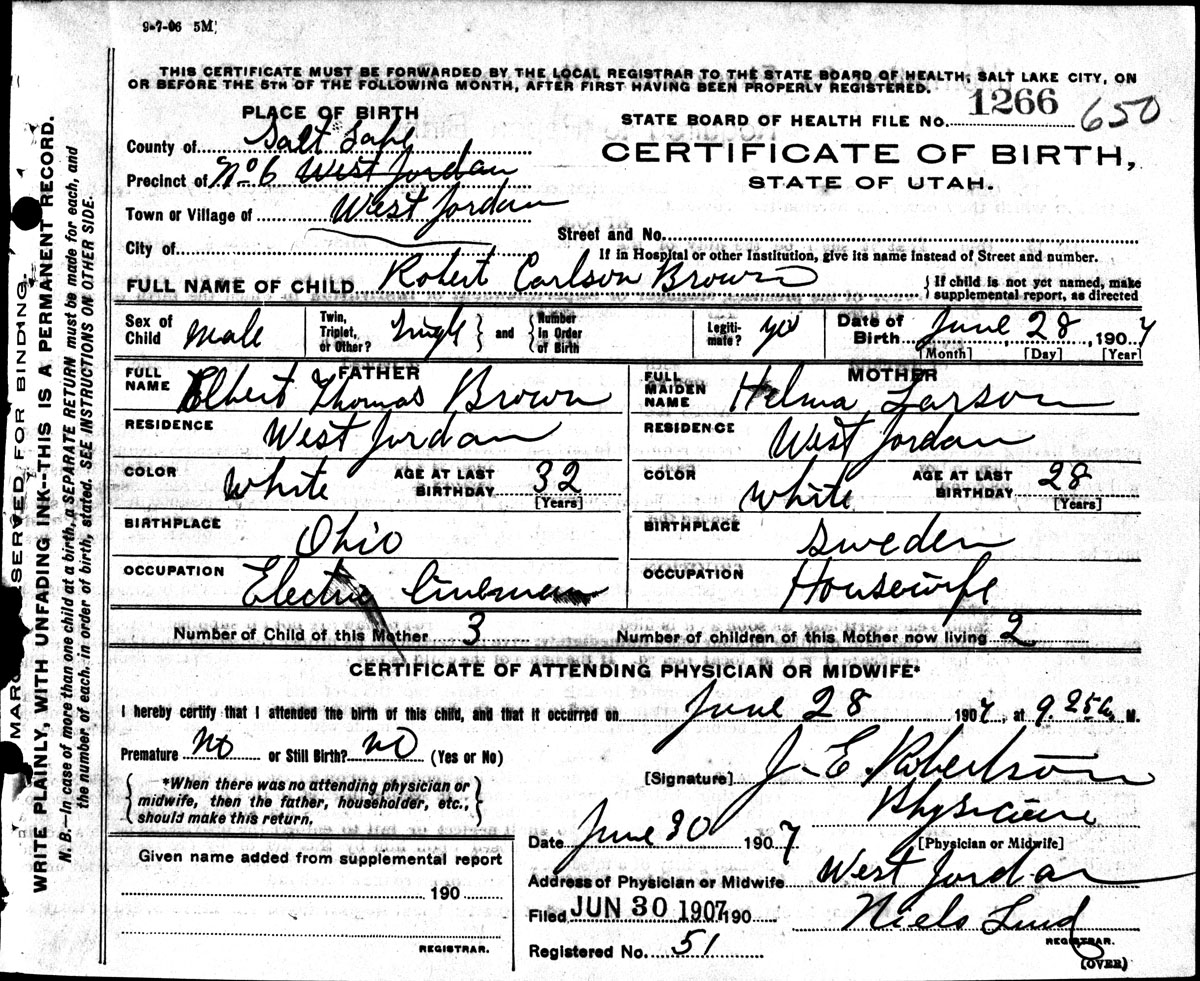 9-7-06 5M
THIS CERTIFICATE MUST BE FORWARDED BY THE LOCAL REGISTRAR TO THE STATE BOARD OF HEALTH, SALT LAKE CITY, ON
OR BEFORE THE 5TH OF THE FOLLOWING MONTH, AFTER FIRST HAVING BEEN PROPERLY REGISTERED.
PLACE OF BIRTH
STATE BOARD OF HEALTH FILE NO. 1266 650
County of Salt Lake
CERTIFICATE OF BIRTH,
Precinct of No 6 West Jordan
STATE OF UTAH.
Town or Village of West Jordan
Street and No.
City of
If in Hospital or other Institution, give its name instead of Street and number.
FULL NAME OF CHILD Robert Carlson Brown
{If child is not yet named, make supplemental report, as directed
Sex of Child male
Twin, Triplet, or Other? Single } and { Number in Order of Birth
Legitimate? yes
Date of Birth June 28, 1907
[Month] [Day] [Year]
FATHER
FULL NAME Elbert Thomas Brown
MOTHER
FULL MAIDEN NAME Helma Larson
RESIDENCE West Jordan
RESIDENCE West Jordan
COLOR White AGE AT LAST BIRTHDAY 32 [Years]
COLOR White AGE AT LAST BIRTHDAY 28 [Years]
BIRTHPLACE Ohio
BIRTHPLACE Sweden
OCCUPATION Electric lineman
OCCUPATION Housewife
Number of Child of this Mother 3 Number of children of this Mother now living 2
CERTIFICATE OF ATTENDING PHYSICIAN OR MIDWIFE*
I hereby certify that I attended the birth of this child, and that it occurred on June 28 1907, at 9.25 a. M.
Premature no or Still Birth? no (Yes or No)
[Signature] J. E. Robertson
{ *When there was no attending physician or
midwife, then the father, householder, etc.,
should make this return. }
Physician
[Physician or Midwife]
Date June 30 1907
Given name added from supplemental report
190
REGISTRAR.
Address of Physician or Midwife West Jordan
Filed JUN 30 1907 190 Niels Lind
REGISTRAR.
Registered No. 51
(OVER)
SERVED FOR BINDING.
WRITE PLAINLY, WITH UNFADING INK--THIS IS A PERMANENT RECORD.
N. B.—In case of more than one child at a birth, a SEPARATE RETURN must be made for each, and
the number of each, in order of birth, stated. SEE INSTRUCTIONS ON OTHER SIDE.